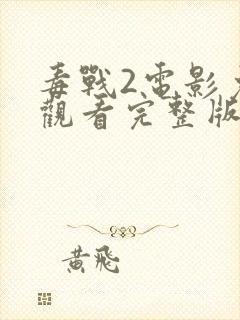 毒戰2電影
觀看完整版
黃飛